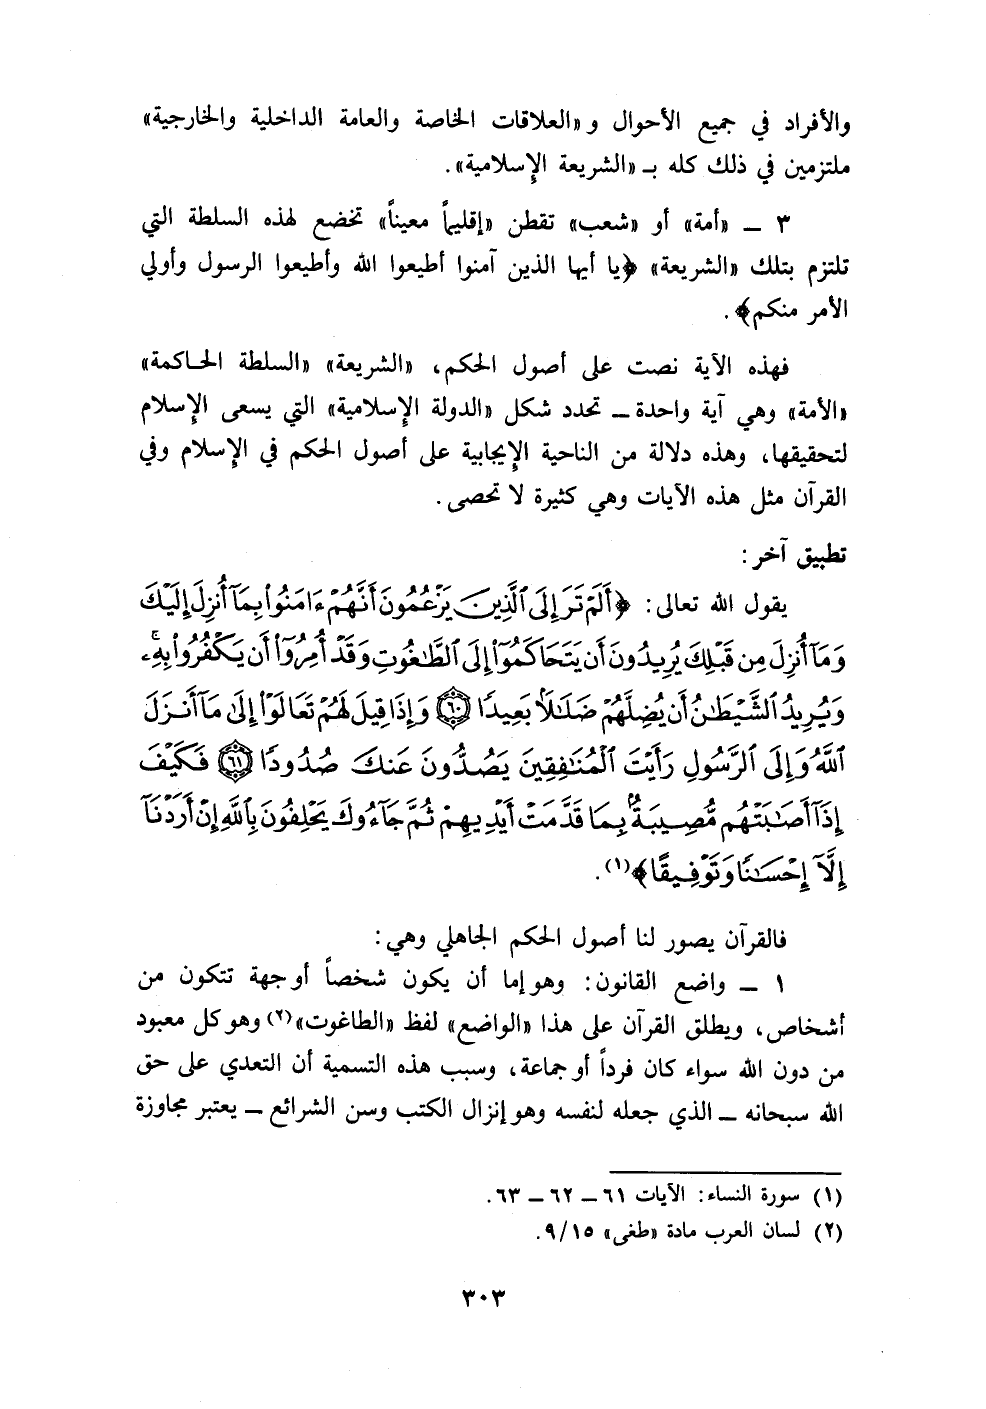 والأفراد في جميع الأحوال و «العلاقات الخاصة والعامة الداخلية والخارجية»
ملتزمين في ذلك كله بـ «الشريعة الإسلامية».
٣ ــ «أمة» أو «شعب» تقطن «إقليماً معيناً» تخضع لهذه السلطة التي
تلتزم بتلك «الشريعة» ﴿يا أيها الذين آمنوا أطيعوا الله وأطيعوا الرسول وأولي
الأمر منكم﴾.
فهذه الآية نصت على أصول الحكم، «الشريعة» «السلطة الحاكمة»
«الأمة» وهي آية واحدة ــ تحدد شكل «الدولة الإسلامية» التي يسعى الإسلام
لتحقيقها، وهذه دلالة من الناحية الإيجابية على أصول الحكم في الإسلام وفي
القرآن مثل هذه الآيات وهي كثيرة لا تحصى.
تطبيق آخر:
يقول الله تعالى: ﴿أَلَمْ تَرَ إِلَى ٱلَّذِينَ يَزْعُمُونَ أَنَّهُمْ ءَامَنُوا۟ بِمَآ أُنزِلَ إِلَيْكَ
وَمَآ أُنزِلَ مِن قَبْلِكَ يُرِيدُونَ أَن يَتَحَاكَمُوٓا۟ إِلَى ٱلطَّـٰغُوتِ وَقَدْ أُمِرُوٓا۟ أَن يَكْفُرُوا۟ بِهِۦۚ
وَيُرِيدُ ٱلشَّيْطَـٰنُ أَن يُضِلَّهُمْ ضَلَـٰلًۢا بَعِيدًا ٦٠ وَإِذَا قِيلَ لَهُمْ تَعَالَوْا۟ إِلَىٰ مَآ أَنزَلَ
ٱللَّهُ وَإِلَى ٱلرَّسُولِ رَأَيْتَ ٱلْمُنَـٰفِقِينَ يَصُدُّونَ عَنكَ صُدُودًا ٦١ فَكَيْفَ
إِذَآ أَصَـٰبَتْهُم مُّصِيبَةٌۢ بِمَا قَدَّمَتْ أَيْدِيهِمْ ثُمَّ جَآءُوكَ يَحْلِفُونَ بِٱللَّهِ إِنْ أَرَدْنَآ
إِلَّآ إِحْسَـٰنًا وَتَوْفِيقًا﴾(١).
فالقرآن يصور لنا أصول الحكم الجاهلي وهي:
١ ــ واضع القانون: وهو إما أن يكون شخصاً أو جهة تتكون من
أشخاص، ويطلق القرآن على هذا «الواضع» لفظ «الطاغوت»(٢) وهو كل معبود
من دون الله سواء كان فرداً أو جماعة، وسبب هذه التسمية أن التعدي على حق
الله سبحانه ــ الذي جعله لنفسه وهو إنزال الكتب وسن الشرائع ــ يعتبر مجاوزة
(١) سورة النساء: الآيات ٦١ ــ ٦٢ ــ ٦٣.
(٢) لسان العرب مادة «طغى» ٩/١٥.
٣٠٣